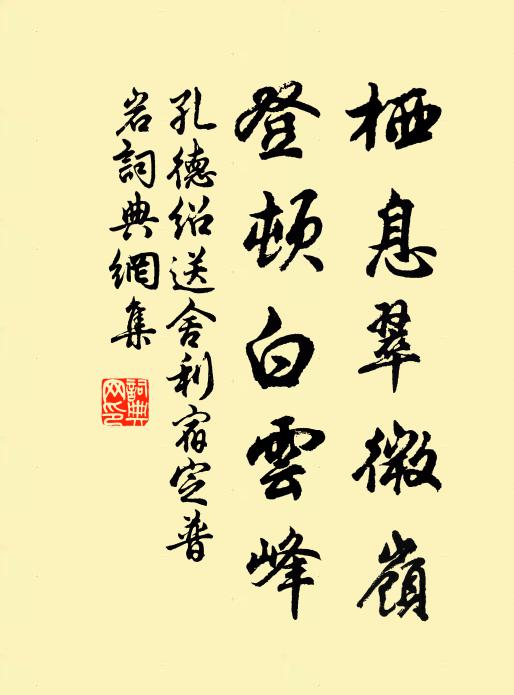 栖息翠微嶺
登頓白雲峰
孔德绍送舍利宿定普
岩詞典網集
詞典
网印